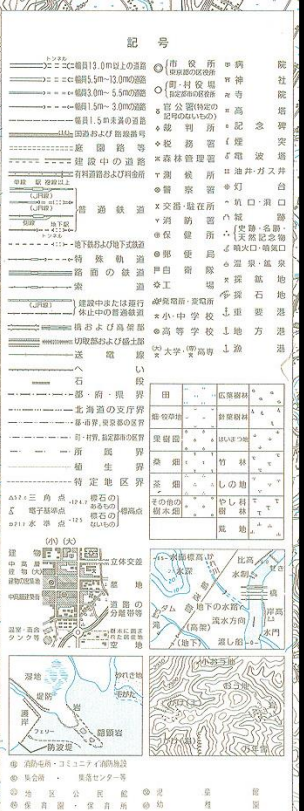 記号
トンネル
幅員13.0m以上の道路
幅員5.5m〜13.0mの道路
幅員3.0m〜5.5mの道路
幅員1.5m〜3.0mの道路
幅員1.5m未満の道路
国道および路線番号
庭園路等
建設中の道路
有料道路および料金所
単線 駅 複線以上
(JR線)
普通鉄道
地下駅
トンネル
地下鉄および地下式鉄道
特殊軌道
路面の鉄道
索道
(JR線)
建設中または運行
休止中の普通鉄道
橋および高架部
切取部および盛土部
送電線
へい
石段
都・府・県界
北海道の支庁界
郡・市界、東京都の区界
町・村界、指定都市の区界
所属界
植生界
特定地区界
三角点
電子基準点
水準点
標石のあるもの
標石のないもの
標高点
市役所
東京都の区役所
町・村役場
指定都市の区役所
官公署(特定の
記号のないもの)
裁判所
税務署
森林管理署
測候所
警察署
交番・駐在所
消防署
保健所
郵便局
自衛隊
工場
発電所・変電所
小・中学校
高等学校
(大)大学、(専)高専
病院
神社
寺院
高塔
記念碑
煙突
電波塔
油井・ガス井
灯台
坑口・洞口
城跡
史跡・名勝・
天然記念物
噴火口・噴気口
温泉・鉱泉
採鉱地
採石地
重要港
地方港
漁港
田
広葉樹林
畑・牧草地
針葉樹林
果樹園
はいまつ地
桑畑
竹林
茶畑
しの地
その他の
樹木畑
やし科
樹林
荒地
(小)(大)
建物
中高層
建物
建物の密集地
中高層建築街
温室・畜舎
タンク等
立体交差
墓地
道路の
分離帯等
空地
水面標高
水深
比高
水制
橋
岸高
水門
ダム
地下の水路
流水方向
(高架)
(地下)
渡し船
湿地
堤防
岩
隠顕岩
フェリー
防波堤
おう地
消防屯所・コミュニティ消防施設
集会所・集落センター等
地区公民館
保育園・保育所
児童館
幼稚園